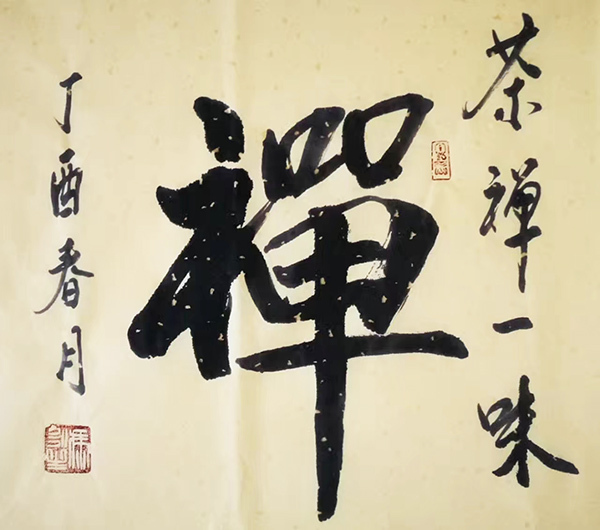 茶禅一味
禪
丁酉春月